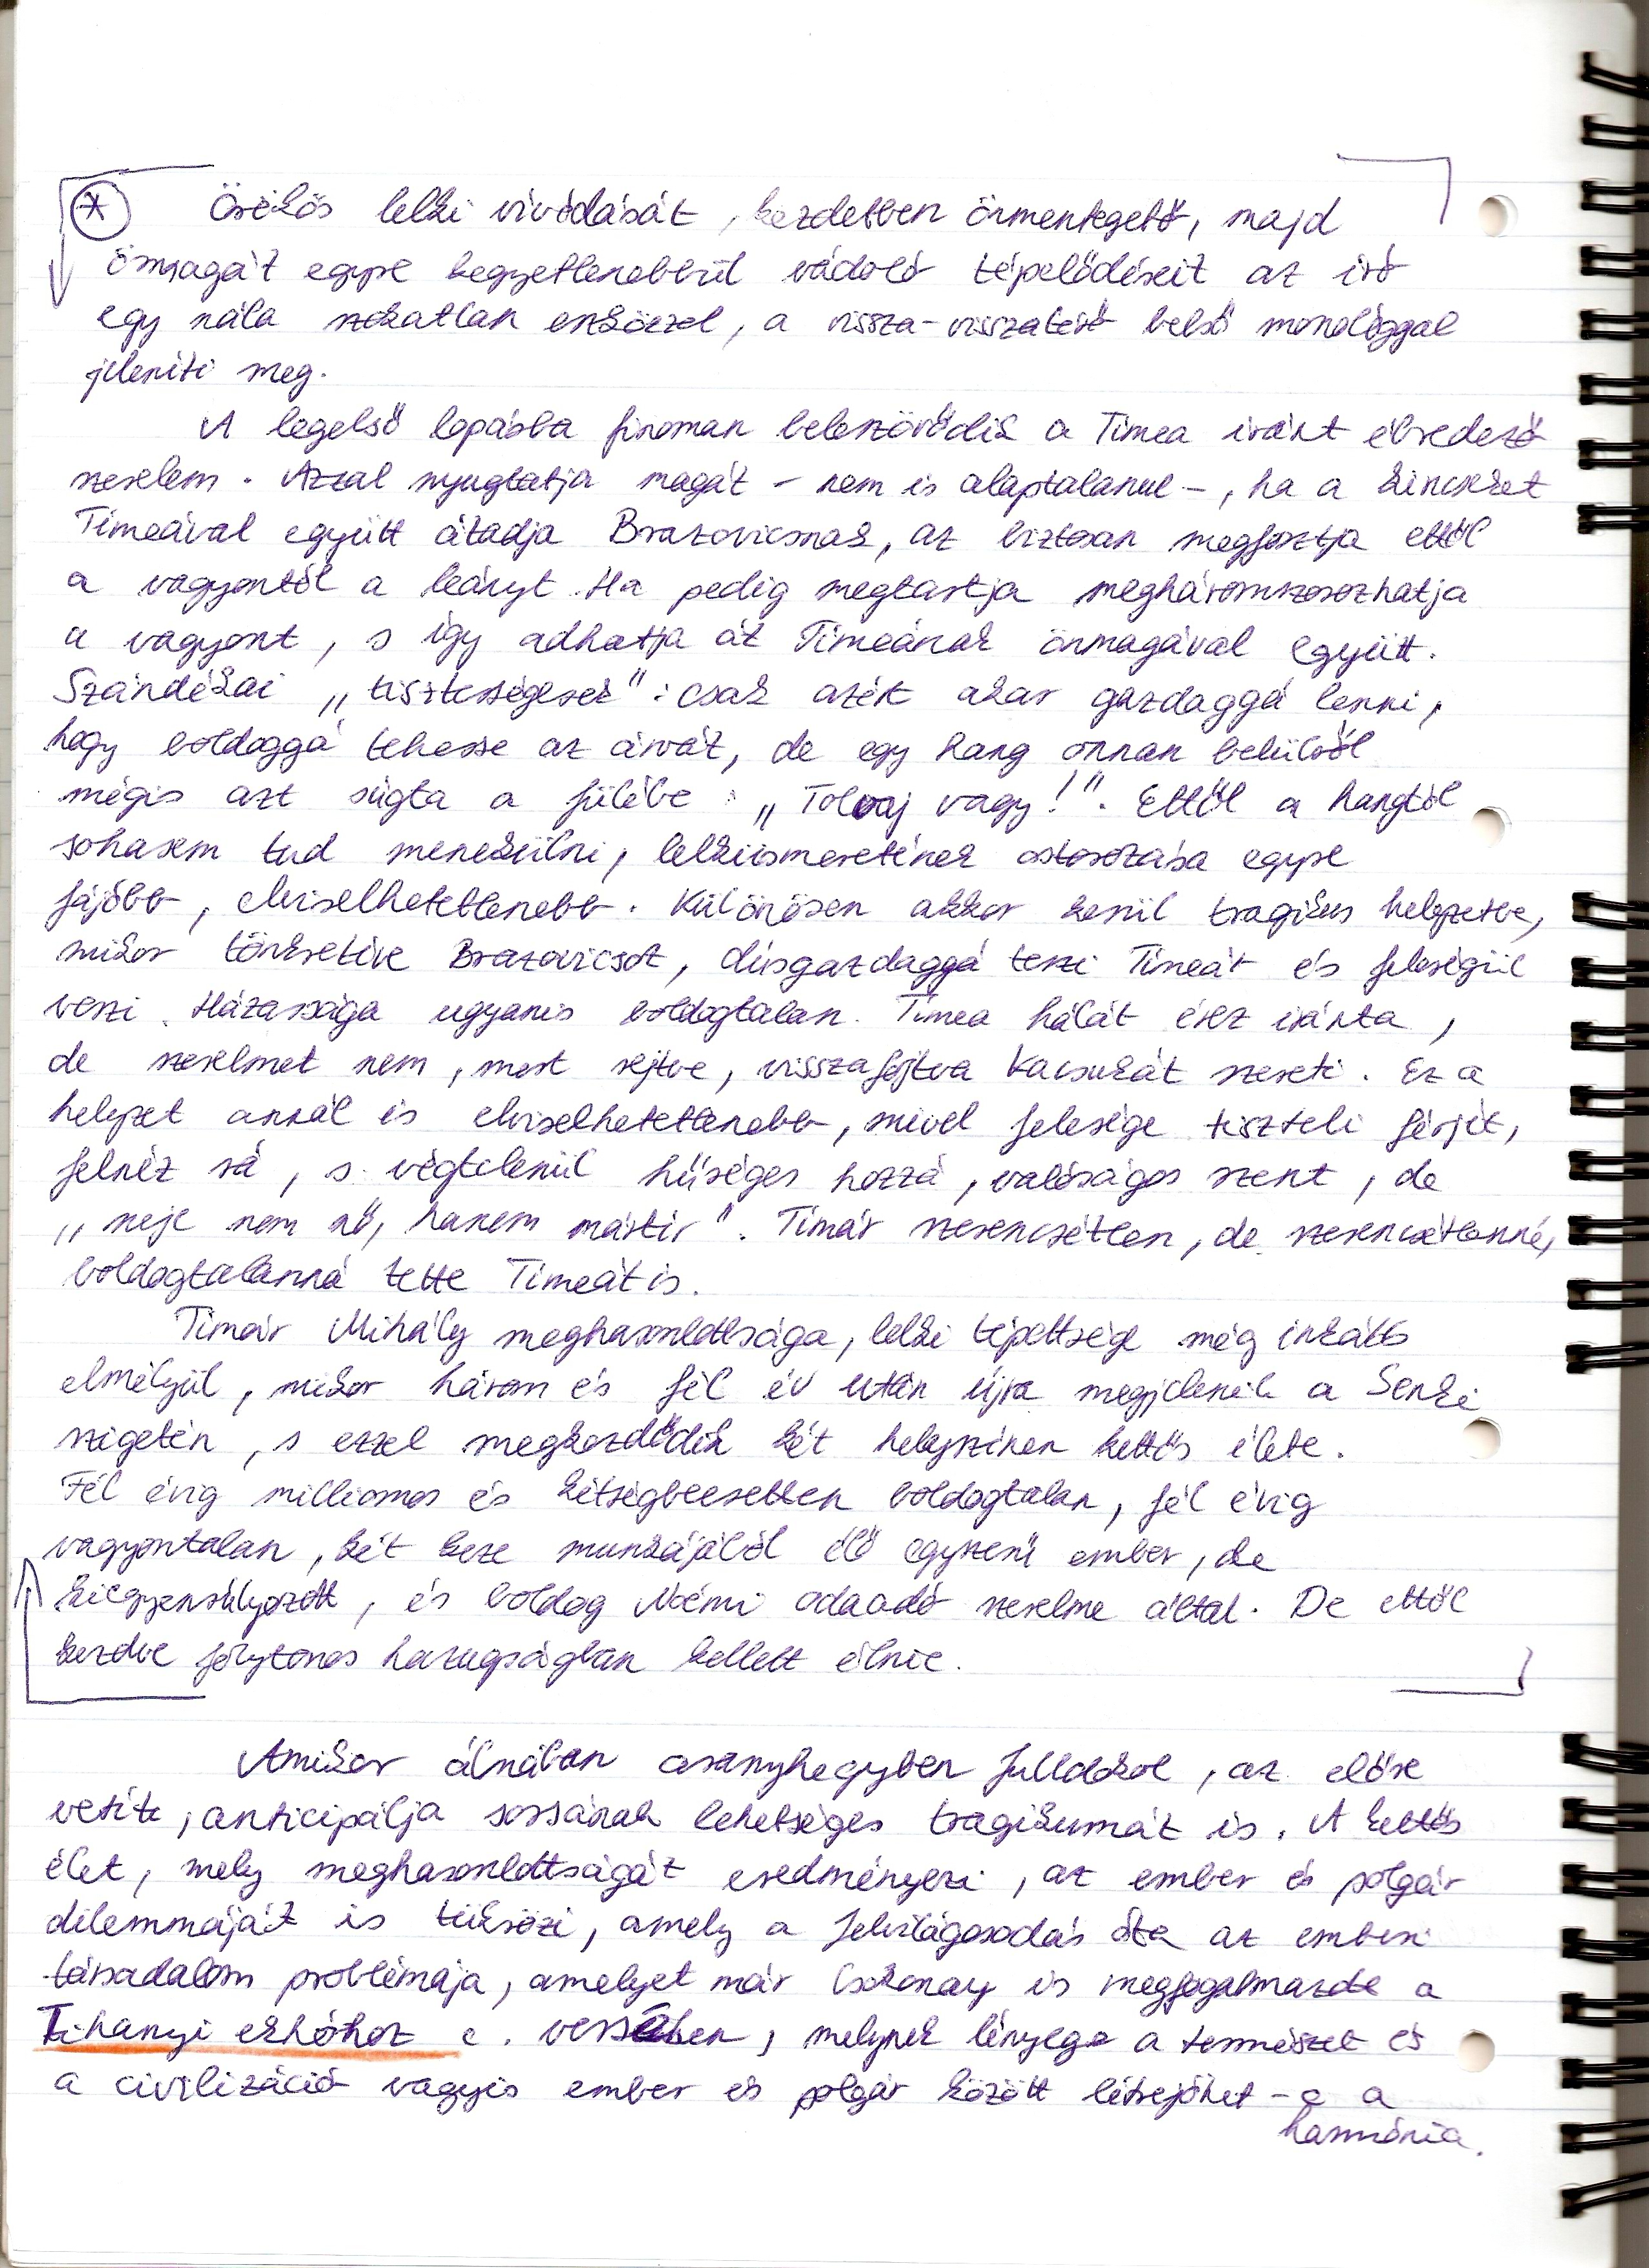 * Örökös lelki vívódását, kezdetben önmentegető, majd
önmagát egyre kegyetlenebbül vádoló tépelődéseit az író
egy nála szokatlan eszközzel, a vissza-visszatérő belső monológgal
jeleníti meg.
A legelső lopásba finoman beleszövődik a Tímea iránt ébredező
szerelem. Azzal nyugtatja magát – nem is alaptalanul –, ha a kincseket
Tímeával együtt átadja Brazovicsnak, az biztosan megfosztja ettől
a vagyontól a leányt. Ha pedig megtartja megháromszorozhatja
a vagyont, s így adhatja át Tímeának önmagával együtt.
Szándékai „tisztességesek": csak azért akar gazdaggá lenni,
hogy boldoggá tehesse az árvát, de egy hang onnan belülről
mégis azt súgta a fülébe: „Tolvaj vagy!". Ettől a hangtól
sohasem tud menekülni, lelkiismeretének ostorozása egyre
fájóbb, elviselhetetlenebb. Különösen akkor kerül tragikus helyzetbe,
mikor tönkretéve Brazovicsot, dúsgazdaggá teszi Tímeát és feleségül
veszi. Házassága ugyanis boldogtalan. Tímea hálát érez iránta,
de szerelmet nem, mert rejtve, visszafojtva Kacsukát szereti. Ez a
helyzet annál is elviselhetetlenebb, mivel felesége tiszteli férjét,
felnéz rá, s végtelenül hűséges hozzá, valóságos szent, de
„neje nem nő, hanem mártír". Tímár szerencsétlen, de szerencsétlenné,
boldogtalanná tette Tímeát is.
Tímár Mihály meghasonlottsága, lelki tépettsége még inkább
elmélyül, mikor három és fél év után újra megjelenik a Senki
szigetén, s ezzel megkezdődik két helyszínen kettős élete.
Fél évig milliomos és kétségbeesetten boldogtalan, fél évig
vagyontalan, két keze munkájából élő egyszerű ember, de
kiegyensúlyozott, és boldog Noémi odaadó szerelme által. De ettől
kezdve folytonos hazugságban kellett élnie.
Amikor álmában aranyhegyben fulldokol, az előre
vetíti, anticipálja sorsának lehetséges tragikumát is. A kettős
élet, mely meghasonlottságát eredményezi, az ember és polgár
dilemmáját is tükrözi, amely a felvilágosodás óta az emberi
társadalom problémája, amelyet már Csokonay is megfogalmazta a
Tihanyi ekhóhoz c. versében, melynek lényege a természet és
a civilizáció vagyis ember és polgár között létrejöhet-e a
harmónia.